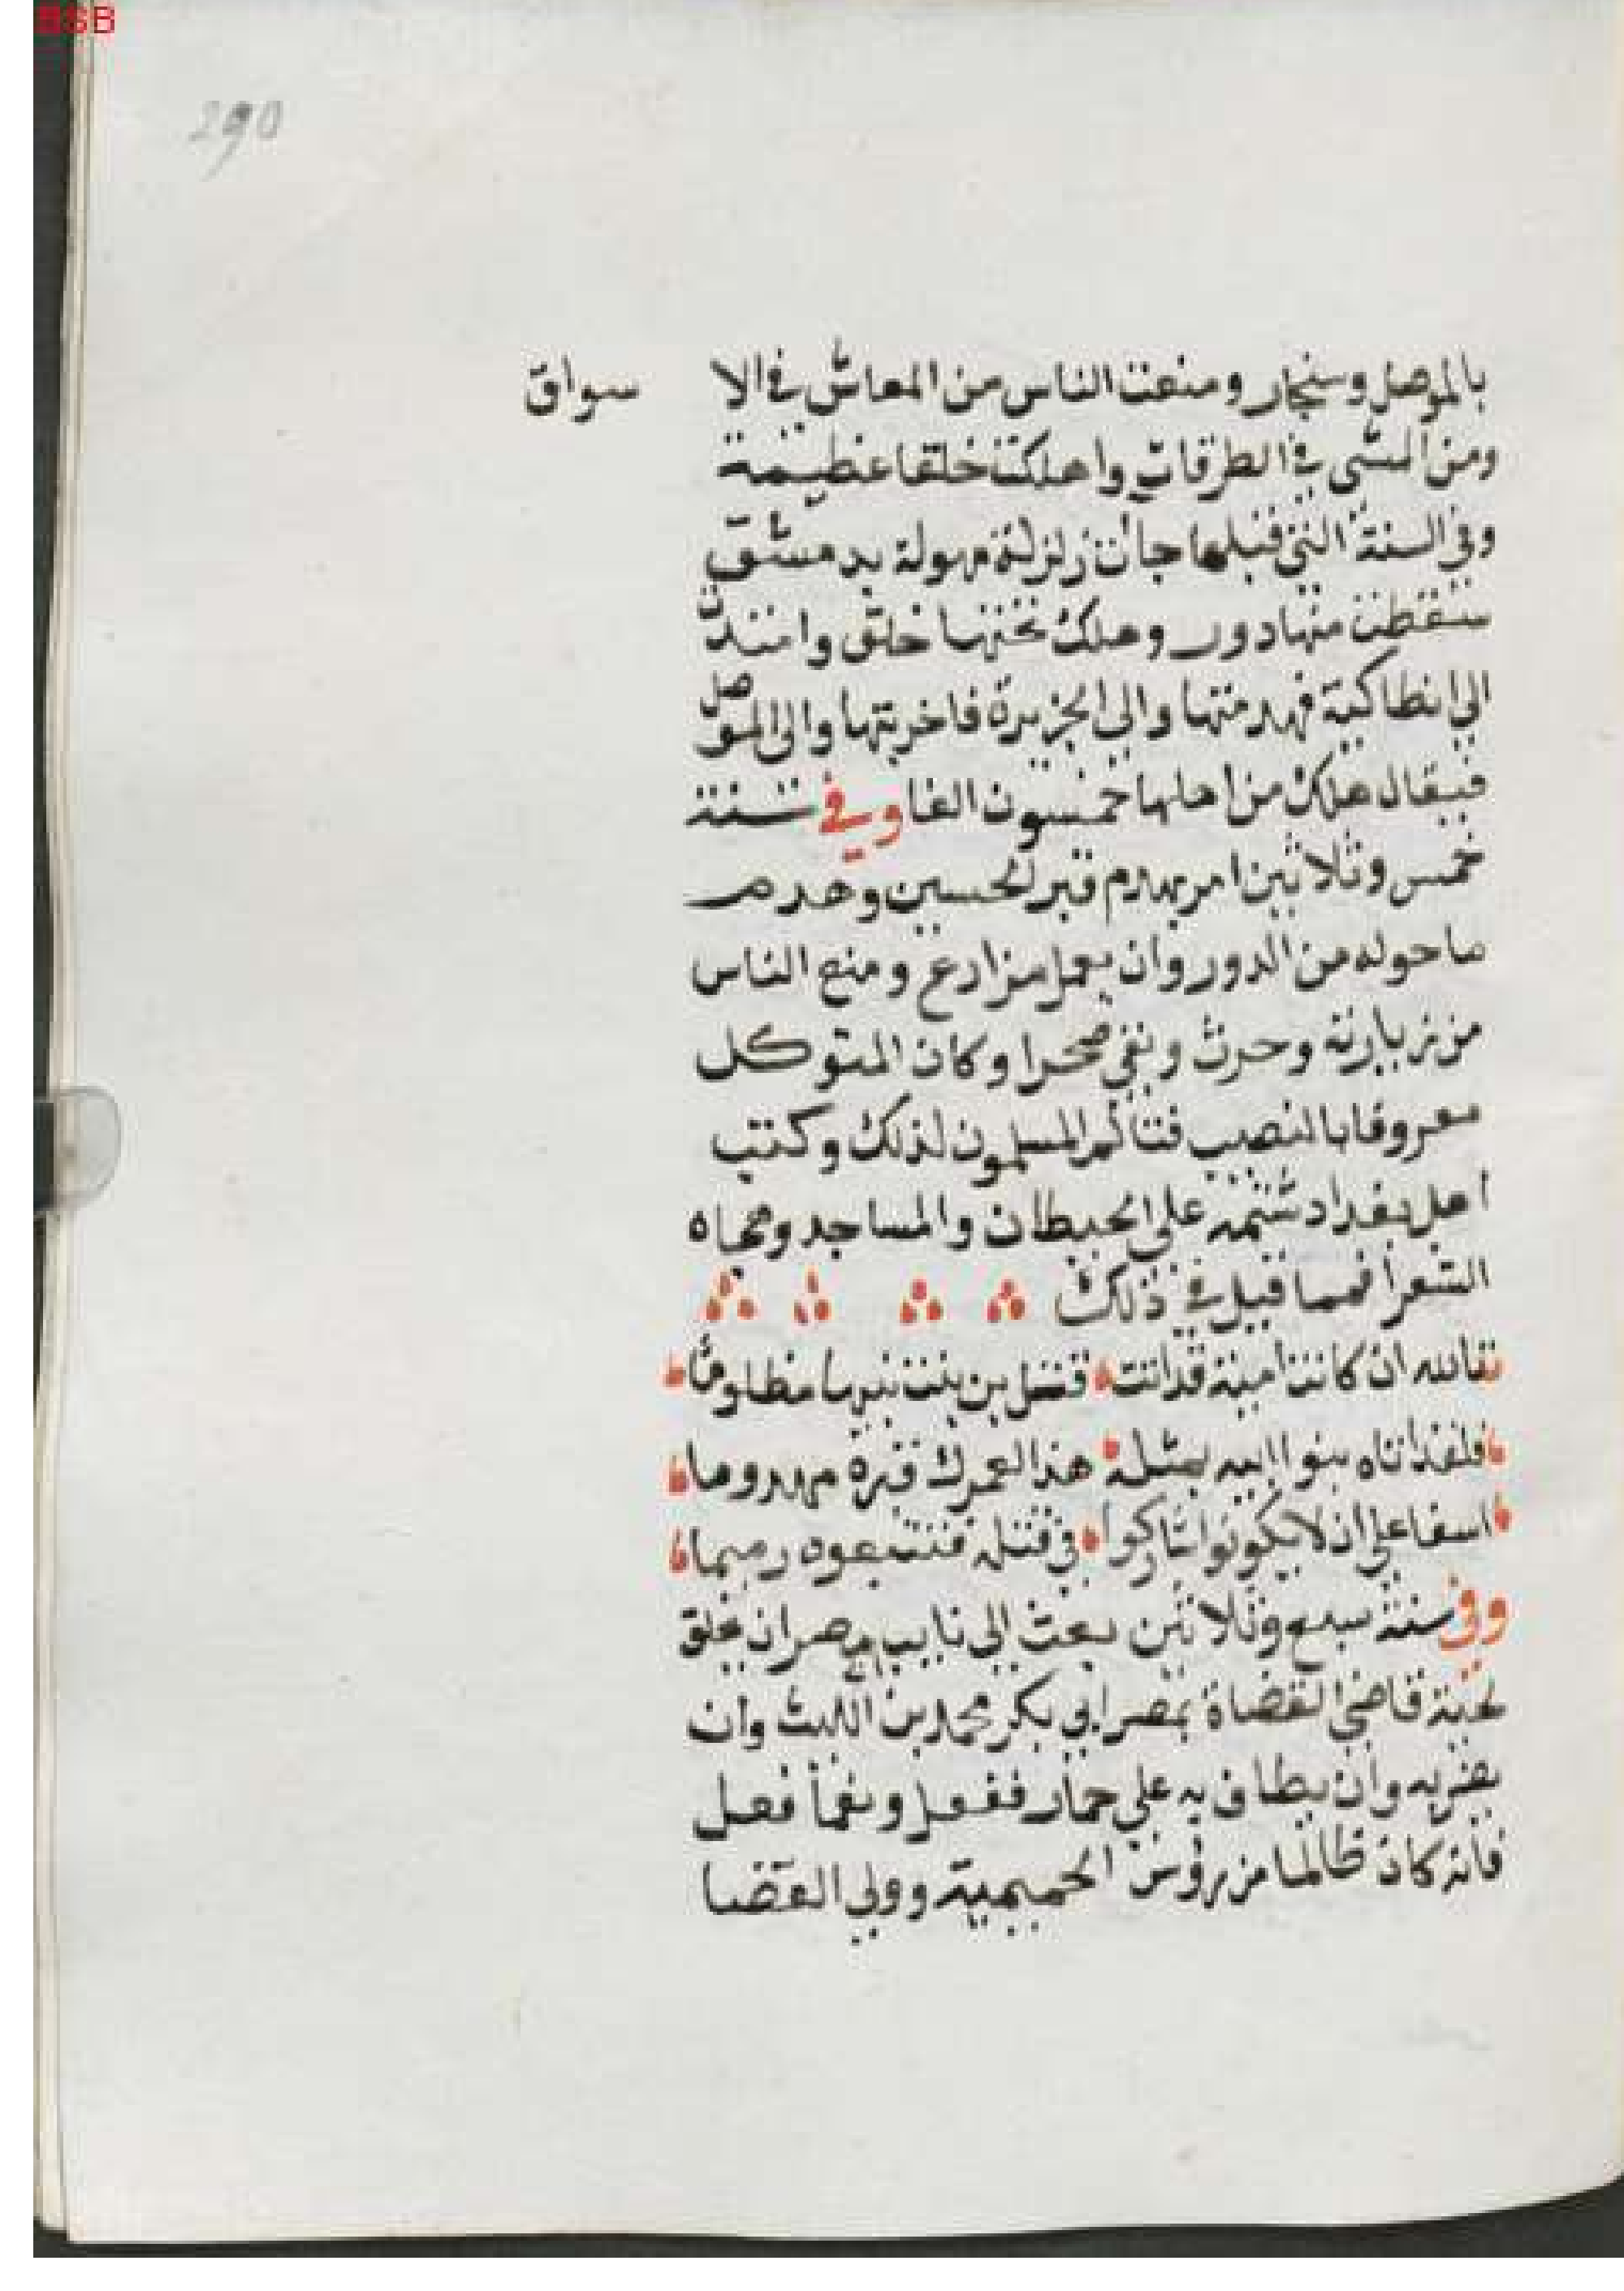 BSB
290
بالموصل وسنجار ومنعت الناس من المعاش في الا سواق
ومن المشي في الطرقات واهلكت خلقا عظيمة
وفي السنة التي قبلها جات زلزلة مهولة بدمشق
سقطت منها دور وهلك تحتها خلق وامتدت
الى انطاكية فهدمتها والى الجزيرة فاخربتها والى الموصل
فيقال هلك من اهلها خمسون الفا وفي سنة
خمس وثلاثين امر بهدم قبر الحسين وهدم
ما حوله من الدور وان يعمل مزارع ومنع الناس
من زيارته وحرث وبقي صحرا وكان المتوكل
معروفا بالنصب فتالم المسلمون لذلك وكتب
أهل بغداد شتمه على الحيطان والمساجد وهجاه
الشعرا فمما قيل في ذلك
تالله ان كانت امية قد اتت قتل بن بنت نبيها مظلوما
فلقد اتاه بنوا ابيه بمثله هذا لعمرك قبره مهدوما
اسفا على ان لا يكونوا شاركوا في قتله فتتبعوه رميما
وفي سنة سبع وثلاثين بعث الى نايب مصر ان يحلق
لحية قاضي القضاة بمصر ابي بكر محمد بن الليث وان
يضربه وان يطاف به على حمار ففعل ونعما فعل
فانه كان ظالما من روس الجهمية وولي القضا